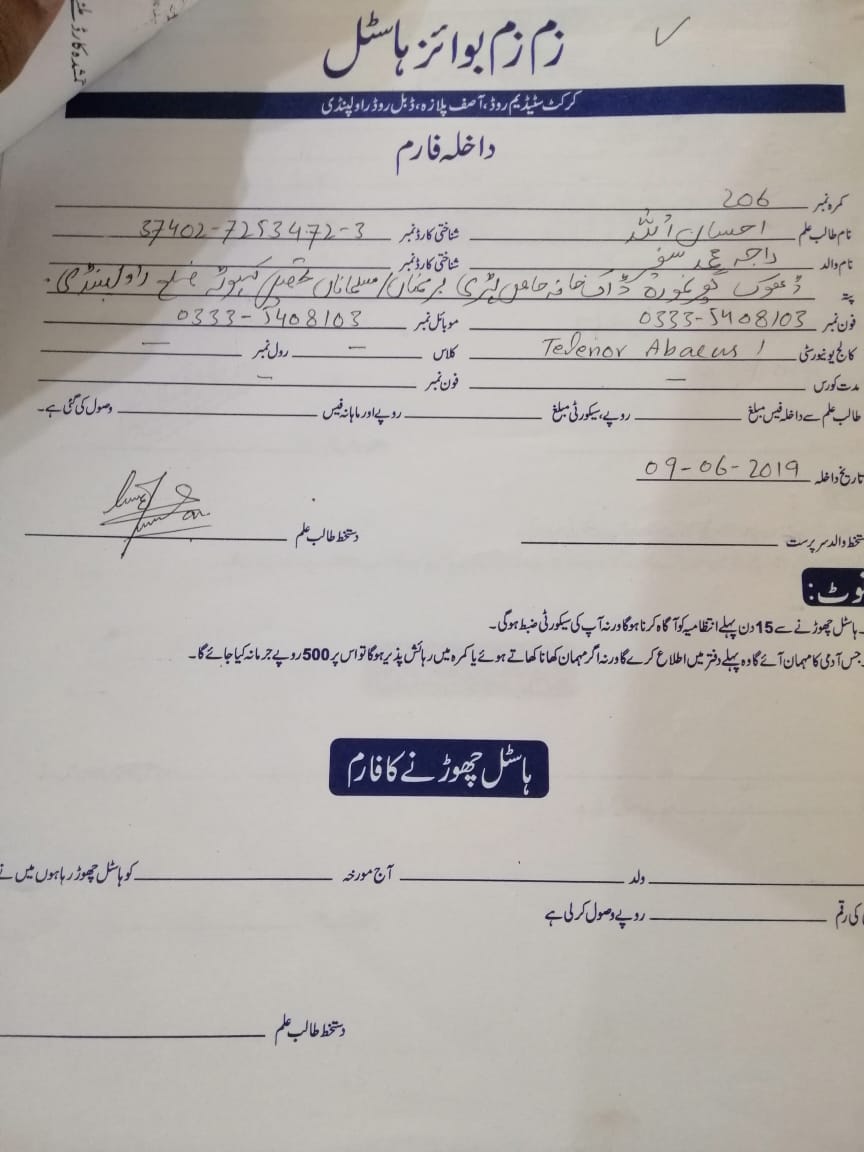 زم زم بوائز ہاسٹل
کرکٹ سٹیڈیم روڈ، آصف پلازہ، ڈبل روڈ راولپنڈی
داخلہ فارم
کمرہ نمبر 206
نام طالب علم احسان اللہ شناختی کارڈ نمبر 37402-7253472-3
نام والد راجہ محمد شناختی کارڈ نمبر
پتہ ڈھوک ڈاک خانہ خاص تحصیل کہوٹہ ضلع راولپنڈی۔
فون نمبر 0333-5408103 موبائل نمبر 0333-5408103
کالج یونیورسٹی Telenor Abacus 1 کلاس — رول نمبر —
مدت کورس — فون نمبر —
طالب علم سے داخلہ فیس مبلغ روپے، سیکورٹی مبلغ روپے اور ماہانہ فیس وصول کی گئی ہے۔
تاریخ داخلہ 09-06-2019
دستخط والد سرپرست دستخط طالب علم
نوٹ:
ہاسٹل چھوڑنے سے 15 دن پہلے انتظامیہ کو آگاہ کرنا ہوگا ورنہ آپ کی سیکورٹی ضبط ہوگی۔
جس آدمی کا مہمان آئے گا وہ پہلے دفتر میں اطلاع کرے گا ورنہ اگر مہمان کھانا کھاتے ہوئے یا کمرہ میں رہائش پذیر ہوگا تو اس پر 500 روپے جرمانہ کیا جائے گا۔
ہاسٹل چھوڑنے کا فارم
ولد آج مورخہ کو ہاسٹل چھوڑ رہا ہوں میں نے
کی رقم روپے وصول کر لی ہے
دستخط طالب علم